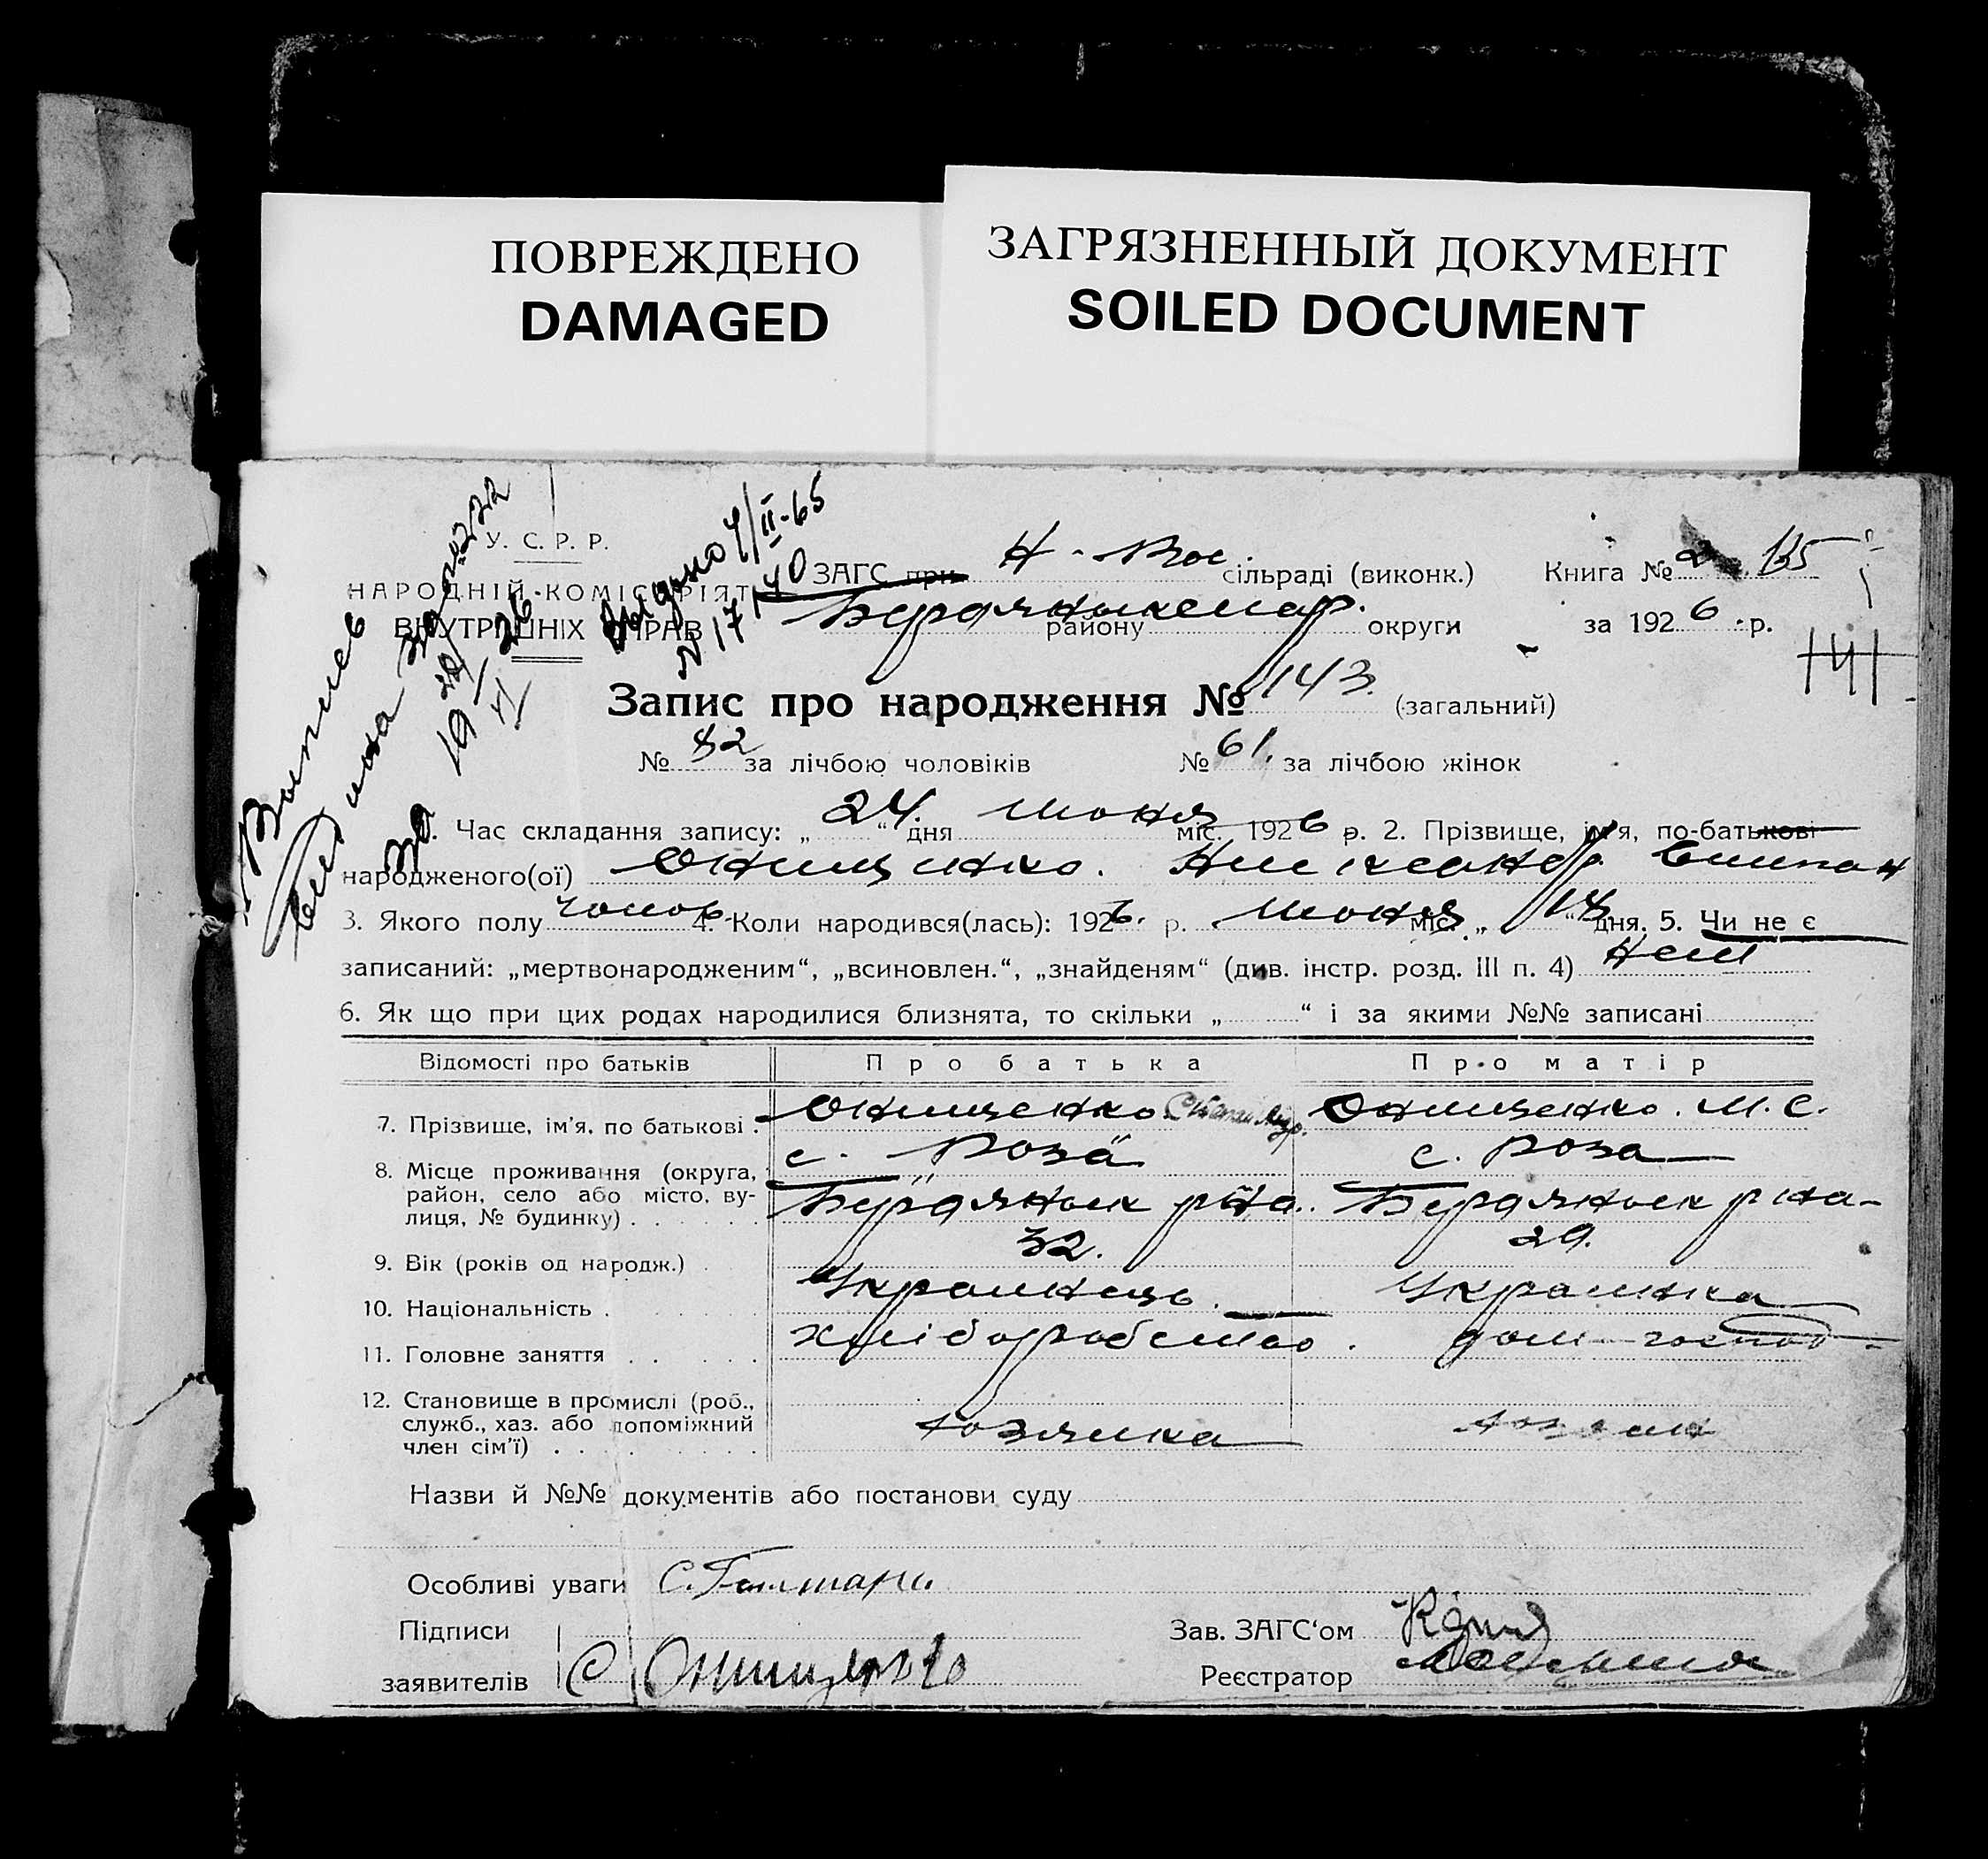 ПОВРЕЖДЕНО
DAMAGED
ЗАГРЯЗНЕННЫЙ ДОКУМЕНТ
SOILED DOCUMENT
У. С. Р. Р.
НАРОДНІЙ КОМІСАРІЯТ
ВНУТРІШНІХ СПРАВ
Видано 4/II-65
N 17140
ЗАГС при Н - Вас. сільраді (виконк.)
района округи
Книга № 2 135
за 1926 р.
141
Запис про народження № 143. (загальний)
№ 82 за лічбою чоловіків № 61. за лічбою жінок
1. Час складання запису: „ 24. “ дня июня міс. 1926 р. 2. Прізвище, ім'я, по-батькові
народженого(ої) Онищенко. Александр Степан
3. Якого полу чолов. 4. Коли народився(лась): 1926. р. июня міс. „ 14. “ дня. 5. Чи не є
записаний: „мертвонародженим“, „всиновлен.“, „знайденям“ (див. інстр. розд. III п. 4) нет
6. Як що при цих родах народилися близнята, то скільки „ “ і за якими №№ записані
Відомості про батьків Про батька Про матір
7. Прізвище, ім'я, по батькові . Онищенко Онищенко. М. С.
8. Місце проживання (округа, район, село або місто, вулиця, № будинку) с. Роза с. Роза
Бердянськ р на. Бердянськ р на
9. Вік (років од народж.) . 32. 29.
10. Національність . Українець. Українка
11. Головне заняття . . хліборобство . дом господ
12. Становище в промислі (роб., служб., хаз. або допоміжний член сім'ї) хозяйка
Назви й №№ документів або постанови суду
Особливі уваги
Підписи
заявителів С Онищенко
Зав. ЗАГС'ом
Реєстратор